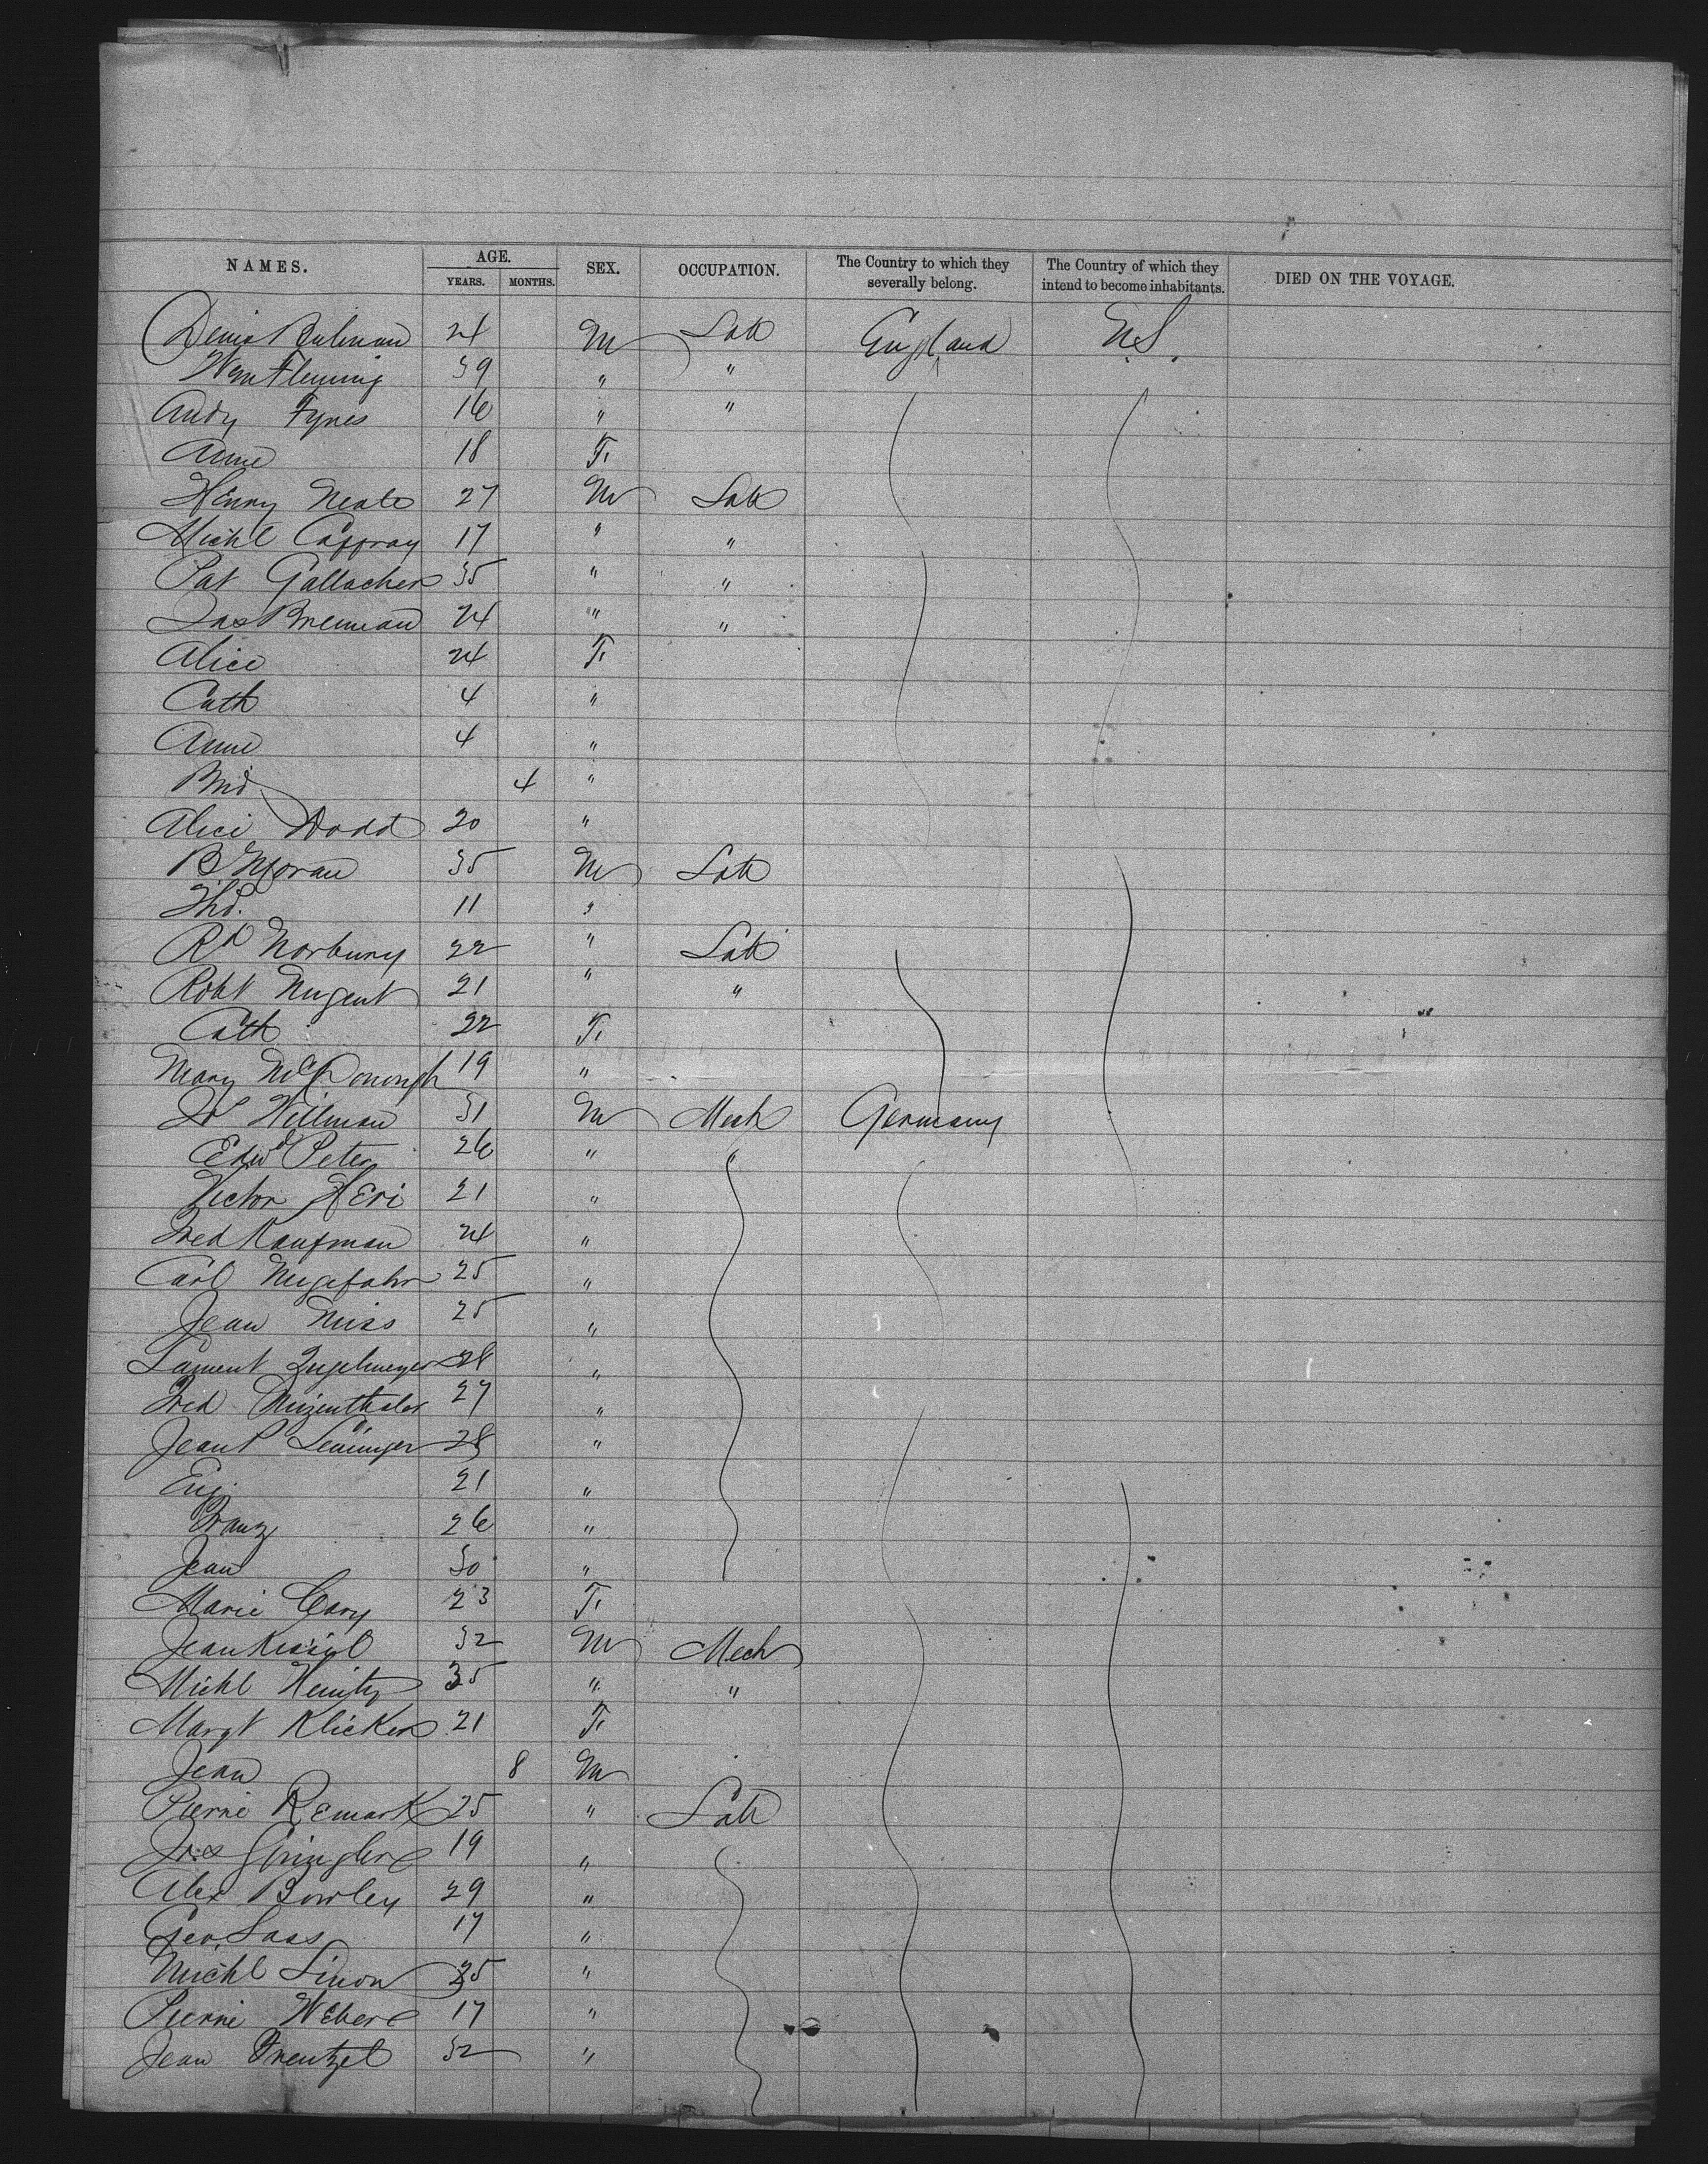 NAMES. AGE. SEX. OCCUPATION. The Country to which they severally belong. The Country of which they intend to become inhabitants. DIED ON THE VOYAGE.
YEARS. MONTHS.
Denis 24 M Lab England U.S.
Wm Fleming 39 " "
Andy Fynes 16 " "
Anne 18 F.
Henry Neale 27 M Lab
Michl Caffray 17 " "
Pat Gallacher 35 " "
Jas Brennan 24 " "
Alice 24 F.
Cath 4 "
Anne 4 "
Brid 4 "
Alice Dodd 20 "
B Moran 35 M Lab
Thos. 11 "
Rd Norbury 22 " Lab
Robt Nugent 21 " "
Cath 22 F.
Mary McDonough 19 "
Js Willman 31 M Mech Germany
Edwd Peter 26 " "
Victor Heri 21 "
Fred Kaufman 24 "
Carl 25 "
Jean Niss 25 "
28 "
Fred 27 "
Jean P 28 "
Eug. 21 "
Franz 26 "
Jean 30 "
Marie Cary 23 F.
Jean 32 M Mech
Michl 35 " "
Margt Klicker 21 F.
Jean 8 M
Pierre Remark 25 " Lab
Jos 19 "
Alex Bowley 29 "
Geo. Sass 17 "
Michl Simon 25 "
Pierre Weber 17 "
Jean Frentzel 32 "